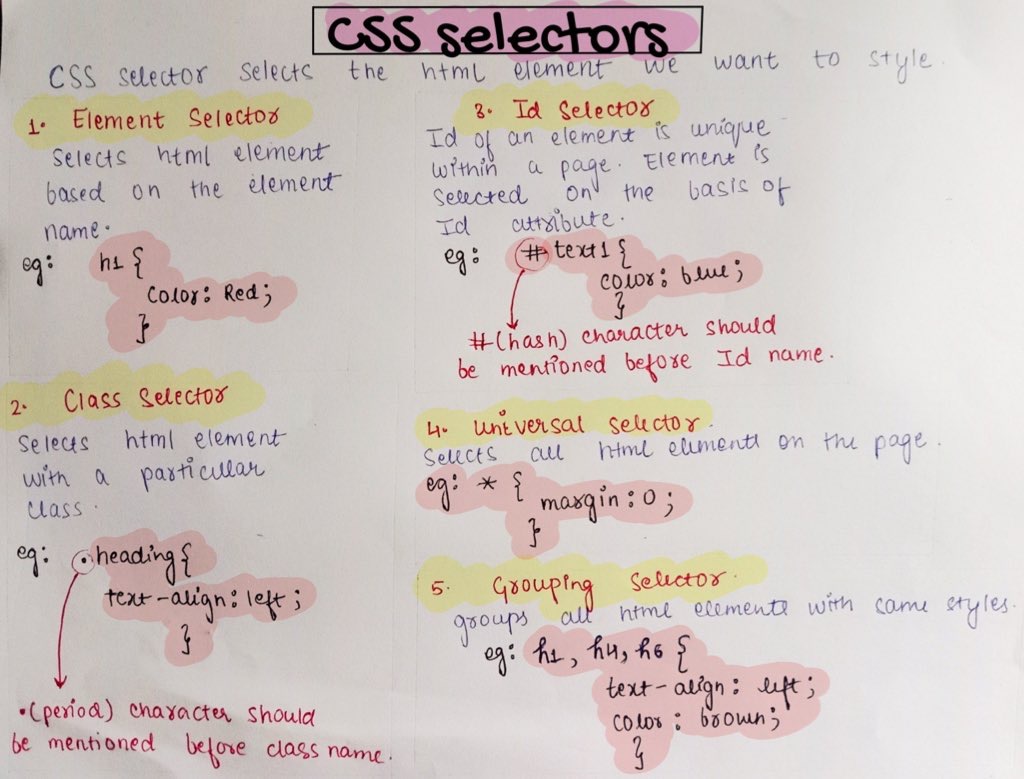 CSS selectors
CSS selector selects the html element we want to style.
1. Element Selector
Selects html element
based on the element
name.
eg: h1 {
color: Red;
}
2. Class Selector
Selects html element
with a particular
class.
eg: .heading {
text-align: left;
}
.(period) character should
be mentioned before class name.
3. Id Selector
Id of an element is unique
within a page. Element is
selected on the basis of
Id attribute.
eg: #text1 {
color: blue;
}
#(hash) character should
be mentioned before Id name.
4. Universal selector.
Selects all html elements on the page.
eg: * {
margin: 0;
}
5. Grouping Selector.
groups all html elements with same styles.
eg: h1, h4, h6 {
text-align: left;
color: brown;
}